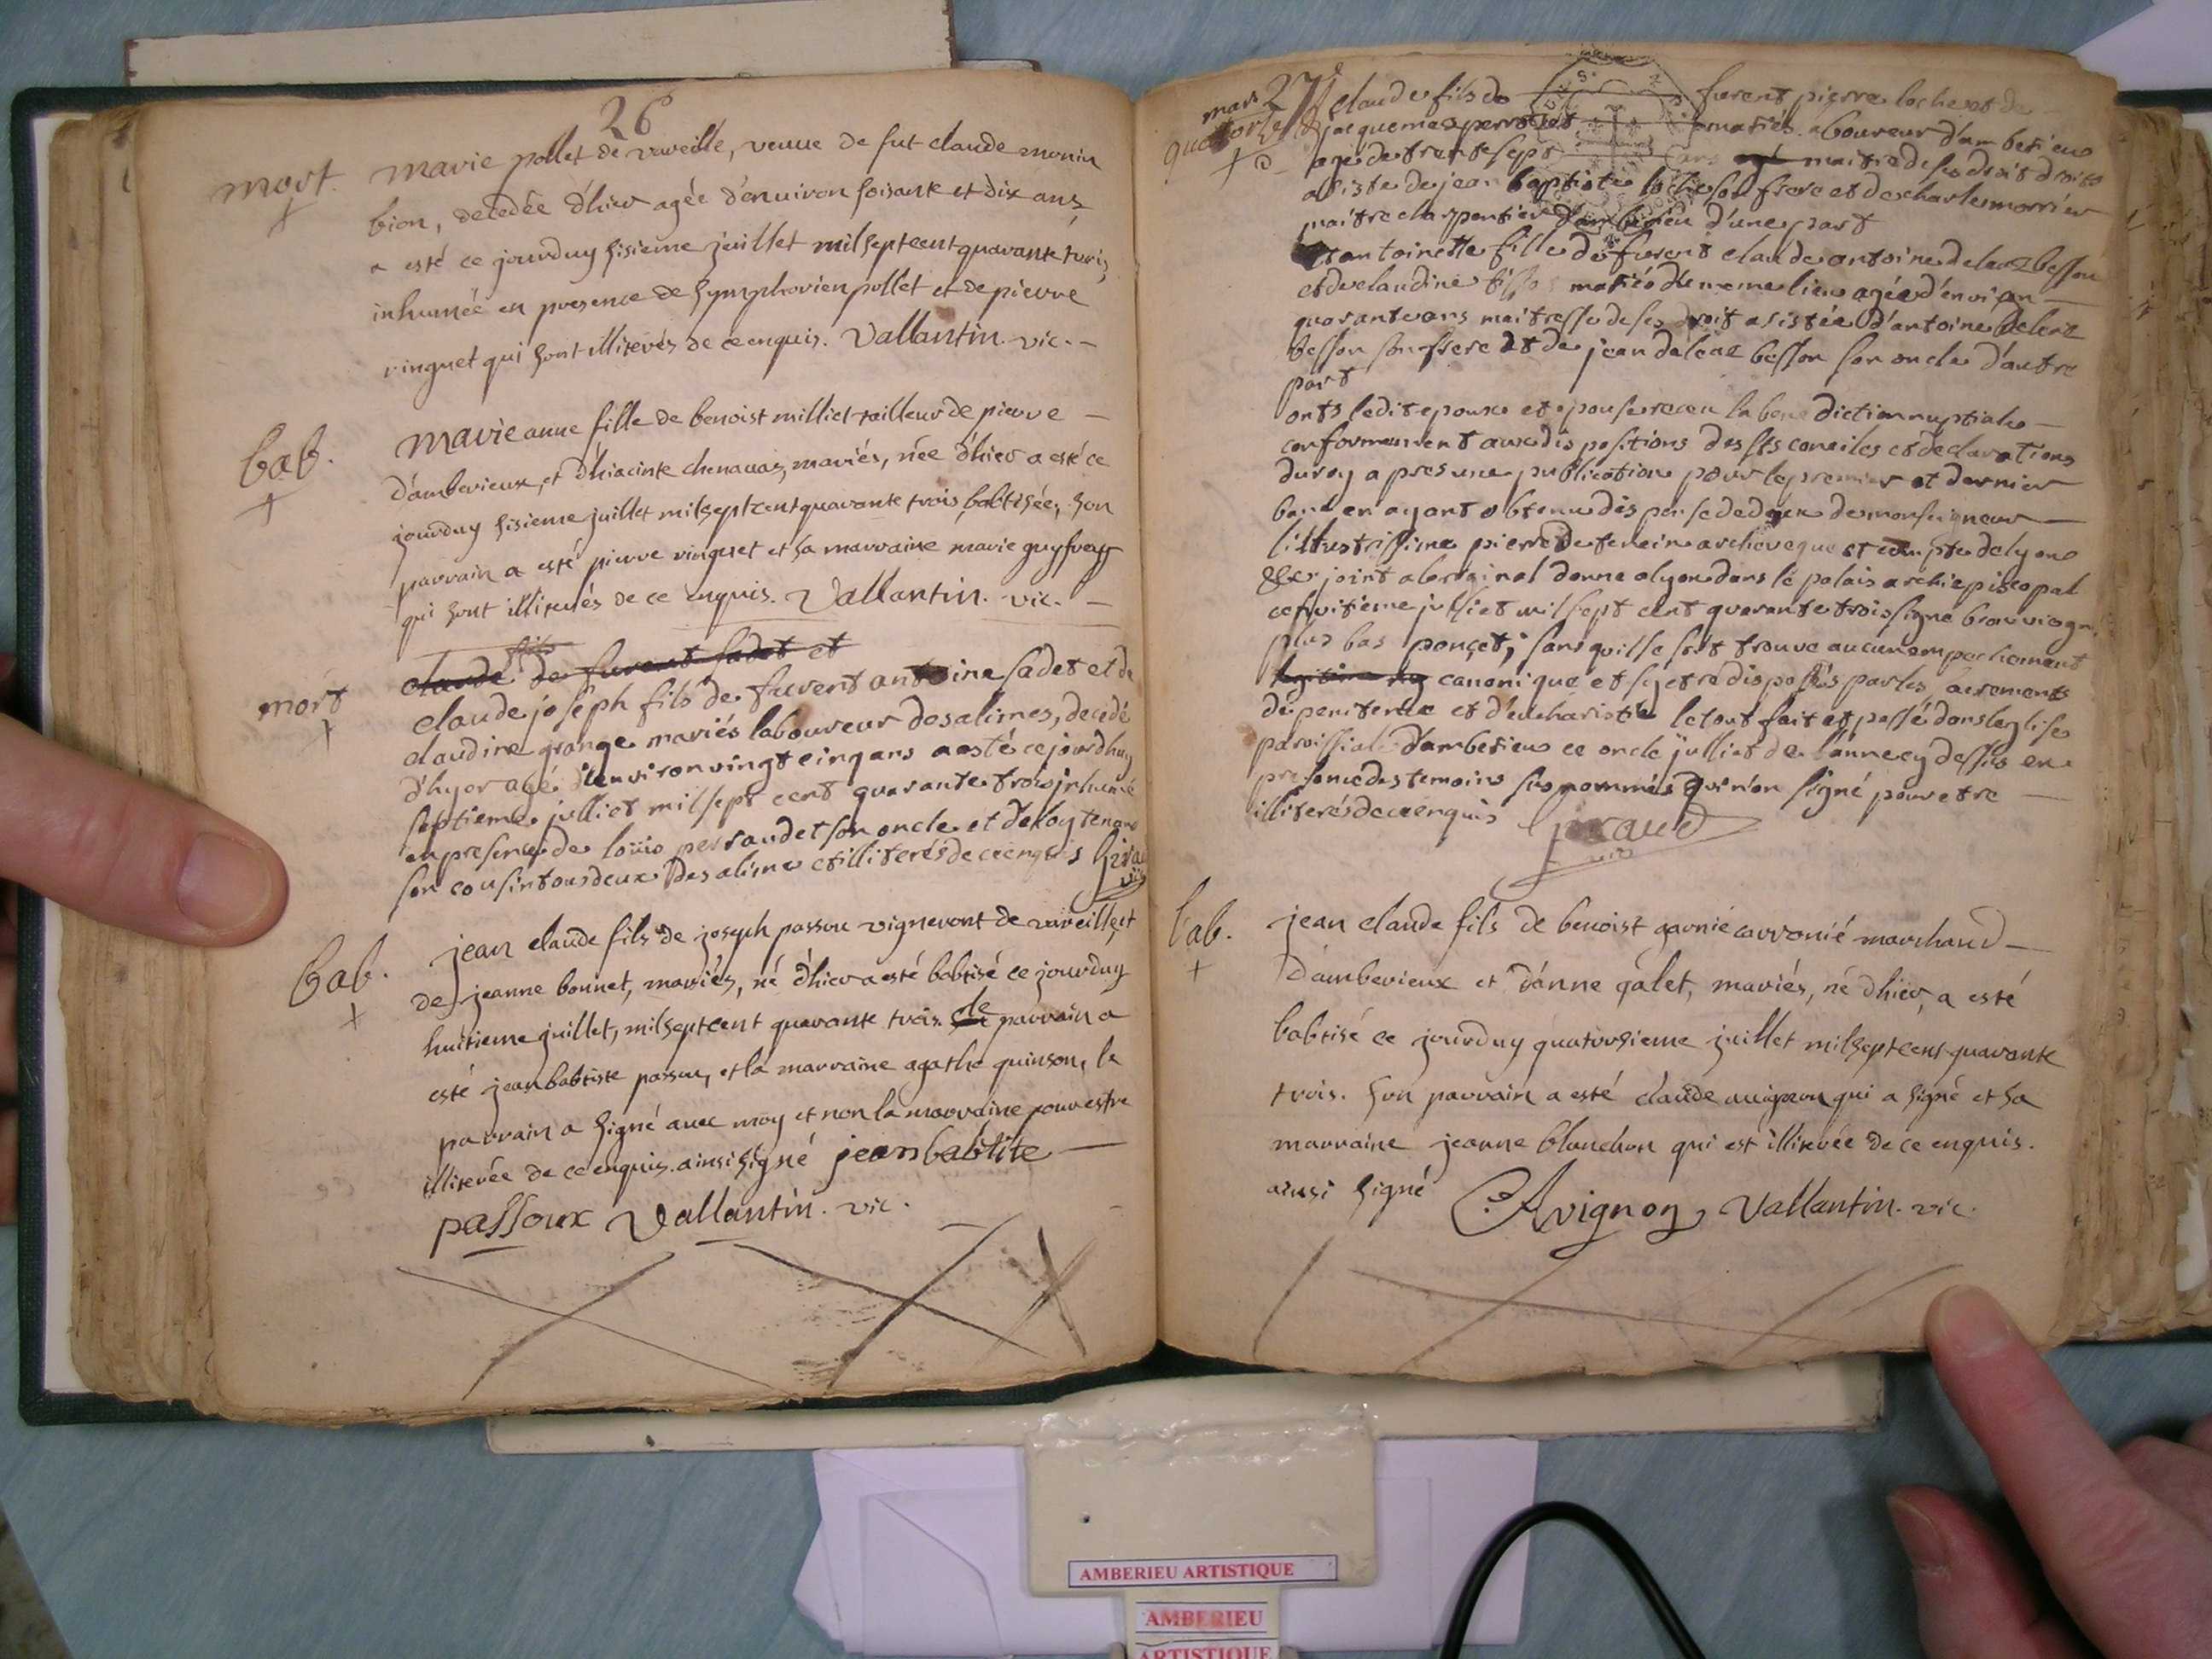 26
mort. marie pollet de vareille, veuue de fut claude monin
bion, decedée d'hier agée d'enuiron soisante et dix ans,
a esté ce jourduy sisieme juillet milseptcent quarante trois,
inhumée en presence de symphorien pollet et de pierre
ringuet qui sont illiterés de ce enquis. Vallantin. vic. -
bab. marie anne fille de benoist milliet tailleur de pierre -
d'amberieux, et d'hiacinte chenauaz, mariés, née d'hier a esté ce
jourduy sisieme juillet milseptcent quarante trois babtisée, son
parrain a esté pierre ringuet et sa marraine marie guy
qui sont illiterés de ce enquis. Vallantin. vic. -
fils
claude de furent sadet et
mort claude joseph fils de furent antoine sadet et de
claudine grange mariés laboureur desalimes, decedé
d'hyer agé d'enuiron vingt cinq ans a esté ce jourdhuy
septieme julliet mil sept cent quarante trois inhumé
en presence de louis perraudet son oncle et de
son cousin tous deux des alime et illiterés de ce enquis
bab. jean claude fils de joseph passou vigneront de vareille, et
de jeanne bonnet, mariés, né d'hier a esté babtisé ce jourduy
huitieme juillet, milseptcent quarante trois. le parrain a
esté jean babtiste passou, et la marraine agathe quinson, le
parrain a signé auec moy et non la marraine pour estre
illiterée de ce enquis. ainsi signé jean babtite -
passoux Vallantin. vic.
27
claude fils de furent pierre
jacquema perrotet mariés laboureur d'amberieu
agé de trente sept ans maitre de ses droit
asisté de jean baptiste son frere et de charle morrier
maitre charpentier d'amberieu d'une part
et antoinette fille de furent claude antoine delene besson
et de claudine mariés du meme lieu agée d'environ -
quarante ans maitresse de ses droit asistée d'antoine delene
besson son frere et de jean delene besson son oncle d'autre
part
onts ledit epoux et epouse receu la benediction nuptiale -
conformement aux dispositions des sts conciles et declarations
du roy apres une publication pour le premier et dernier
banc en ayant obtenu dispense de deux de monseigneur -
l'illustrissime pierre de archeveque et compte de lyon
joint a loriginal donne a lyon dans le palais archiepiscopal
ce huitieme julliet mil sept cent quarante trois signé
plus bas ponçet, sans quil se soit trouve aucun empechement
canonique et s'y etre disposés par les sacrements
de penitence et d'eucharistie le tout fait et passé dans leglise
paroissial d'amberieu ce onze julliet de l'année cy dessus en
presence des temoins sus nommés qui n'on signé pour etre -
illiterés de ce enquis
bab. jean claude fils de benoist garnié marchand -
d'amberieux et d'anne galet, mariés, né d'hier, a esté
babtisé ce jourduy quatorsieme juillet milseptcent quarante
trois. son parrain a esté claude auignon qui a signé et sa
marraine jeanne blanchon qui est illiterée de ce enquis.
ainsi signé C. Avignon Vallantin. vic.
AMBERIEU ARTISTIQUE
AMBERIEU
ARTISTIQUE